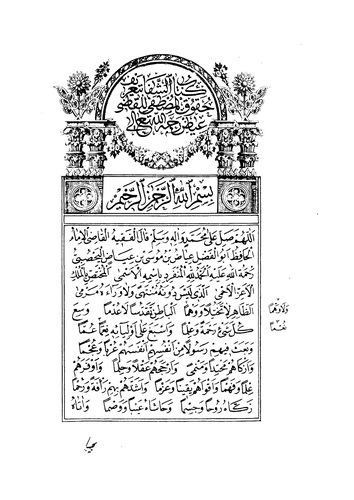 كتاب الشفا بتعريف
حقوق المصطفى للقاضي
عياض رحمه الله تعالى
بسم الله الرحمن الرحيم
اللهم صل على محمد واله وسلم قال الفقيه القاضي الامام
الحافظ ابو الفضل عياض بن موسى بن عياض اليحصبي
رحمة الله عليه الحمد لله المنفرد باسمه الاسمى المختص بالملك
الاعز الاحمى الذي ليس دونه منتهى ولا وراءه مرمى
الظاهر لا تخيلا ووهما الباطن تقدسا لا عدما وسع
كل شيء رحمة وعلما واسبغ على اوليائه نعما عما
وبعث فيهم رسولا من انفسهم انفسهم عربا وعجما
وازكاهم محتدا ومنمى وارجحهم عقلا وحلما واوفرهم
علما وفهما واقواهم يقينا وعزما واشدهم بهم رافة ورحما
زكاه روحا وجسما وحاشاه عيبا ووصما واتاه
ولا وهما